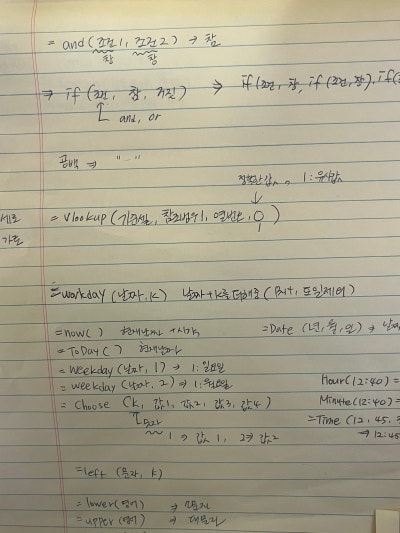 = and(조건1, 조건2) → 참
참 참
⇒ if (조건, 참, 거짓) ⇒ if(조건, 참, if(조건, 참), if(
and, or
공백 ⇒ " "
정확한값, 1: 유사값
세로
가로
= Vlookup(기준셀, 참조범위, 열번호, 0)
1
= workday (날짜, K) 날짜+K를 더해줌 (일, 토일제외)
= now( ) 현재날짜 + 시간
= Date (년, 월, 일) → 날짜
= ToDay( ) 현재날짜
= Weekday (날짜, 1) → 1: 일요일
= weekday (날짜, 2) → 1: 월요일
Hour(12:40) =
Minute(12:40) =
= Choose (K, 값1, 값2, 값3, 값4)
= Time (12, 45, 3
숫자
→ 12:45
1 → 값1, 2 → 값2
= left (문자, K)
= lower(영어) ⇒ 소문자
= upper(영어) ⇒ 대문자